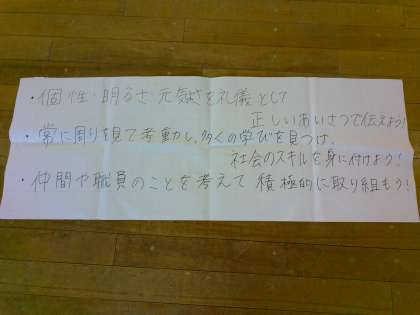 ・個性・明るさ・元気さを礼儀として
正しいあいさつで伝えよう!
・常に周りを見て考動し、多くの学びを見つけ、
社会のスキルを身に付けよう!
・仲間や職員のことを考えて積極的に取り組もう!